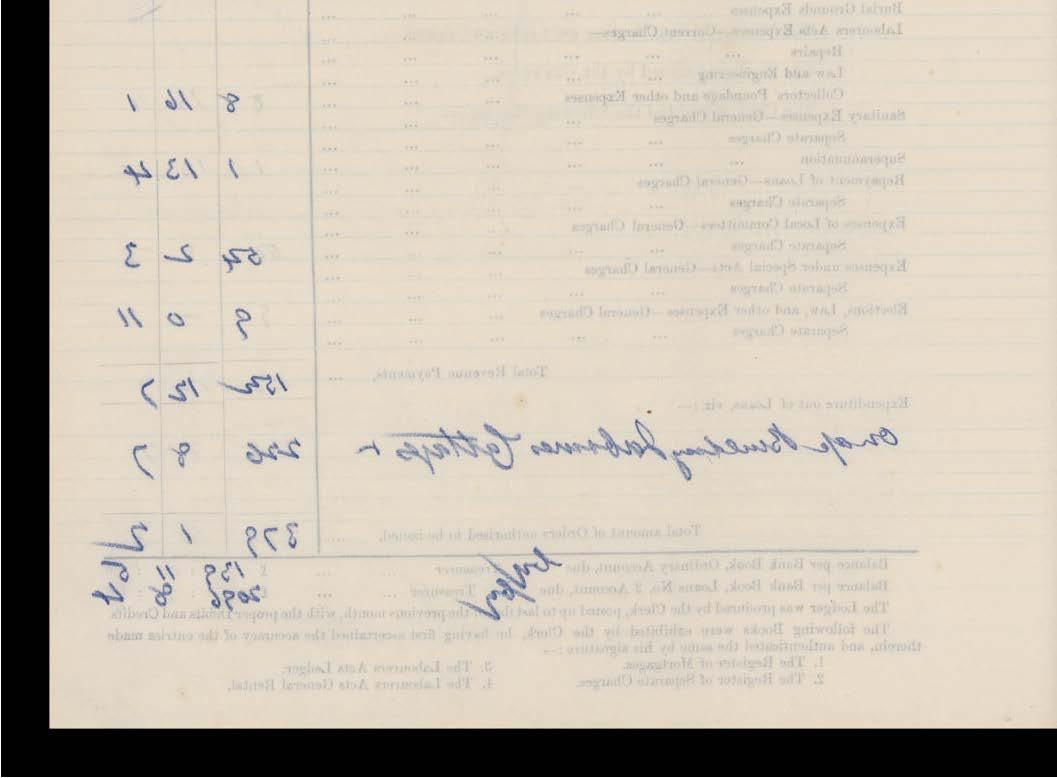 Burial Grounds Expenses ... ... ... ... ...
Labourers Acts Expenses—Current Charges— ... ... ... ...
Repairs ... ... ... ... ... ...
Law and Engineering ... ... ... ... ...
Collectors Poundage and other Expenses ... ... ... 8 16 1
Sanitary Expenses—General Charges ... ... ... ...
Separate Charges ... ... ... ... ...
Superannuation ... ... ... ... ... ... 1 13 4
Repayment of Loans—General Charges ... ... ... ...
Separate Charges ... ... ... ... ...
Expenses of Local Committees—General Charges ... ... ...
Separate Charges ... ... ... ... ... 54 2 3
Expenses under Special Acts—General Charges ... ... ...
Separate Charges ... ... ... ... ...
Elections, Law, and other Expenses—General Charges ... ... ... 9 0 11
Separate Charges ... ... ... ... ...
Total Revenue Payments, ... 152 12 7
Expenditure out of Loans, viz.:—
Building Labourers Cottages 226 8 7
Total amount of Orders authorised to be issued, ...... 379 1 2
Balance per Bank Book, Ordinary Account, due Treasurer ... ... 139 11
Balance per Bank Book, Loans No. 2 Account, due Treasurer ... ... 2096 8
The Ledger was produced by the Clerk, posted up to last day of the previous month, with the proper Debits and Credits.
The following Books were exhibited by the Clerk, he having first ascertained the accuracy of the entries made
therein, and authenticated the same by his signature:—
1. The Register of Mortgages. 3. The Labourers Acts Ledger.
2. The Register of Separate Charges. 4. The Labourers Acts General Rental.